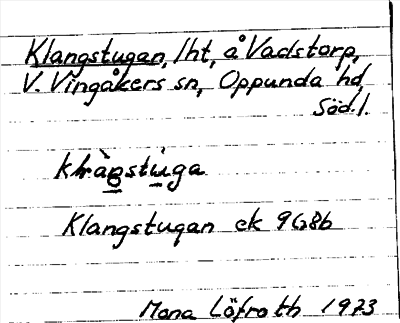 Klangstugan, lht, å Vadstorp,
V. Vingåkers sn, Oppunda hd,
Söd.l.
Klangstugan ek 9G8b
Mona Löfroth 1973